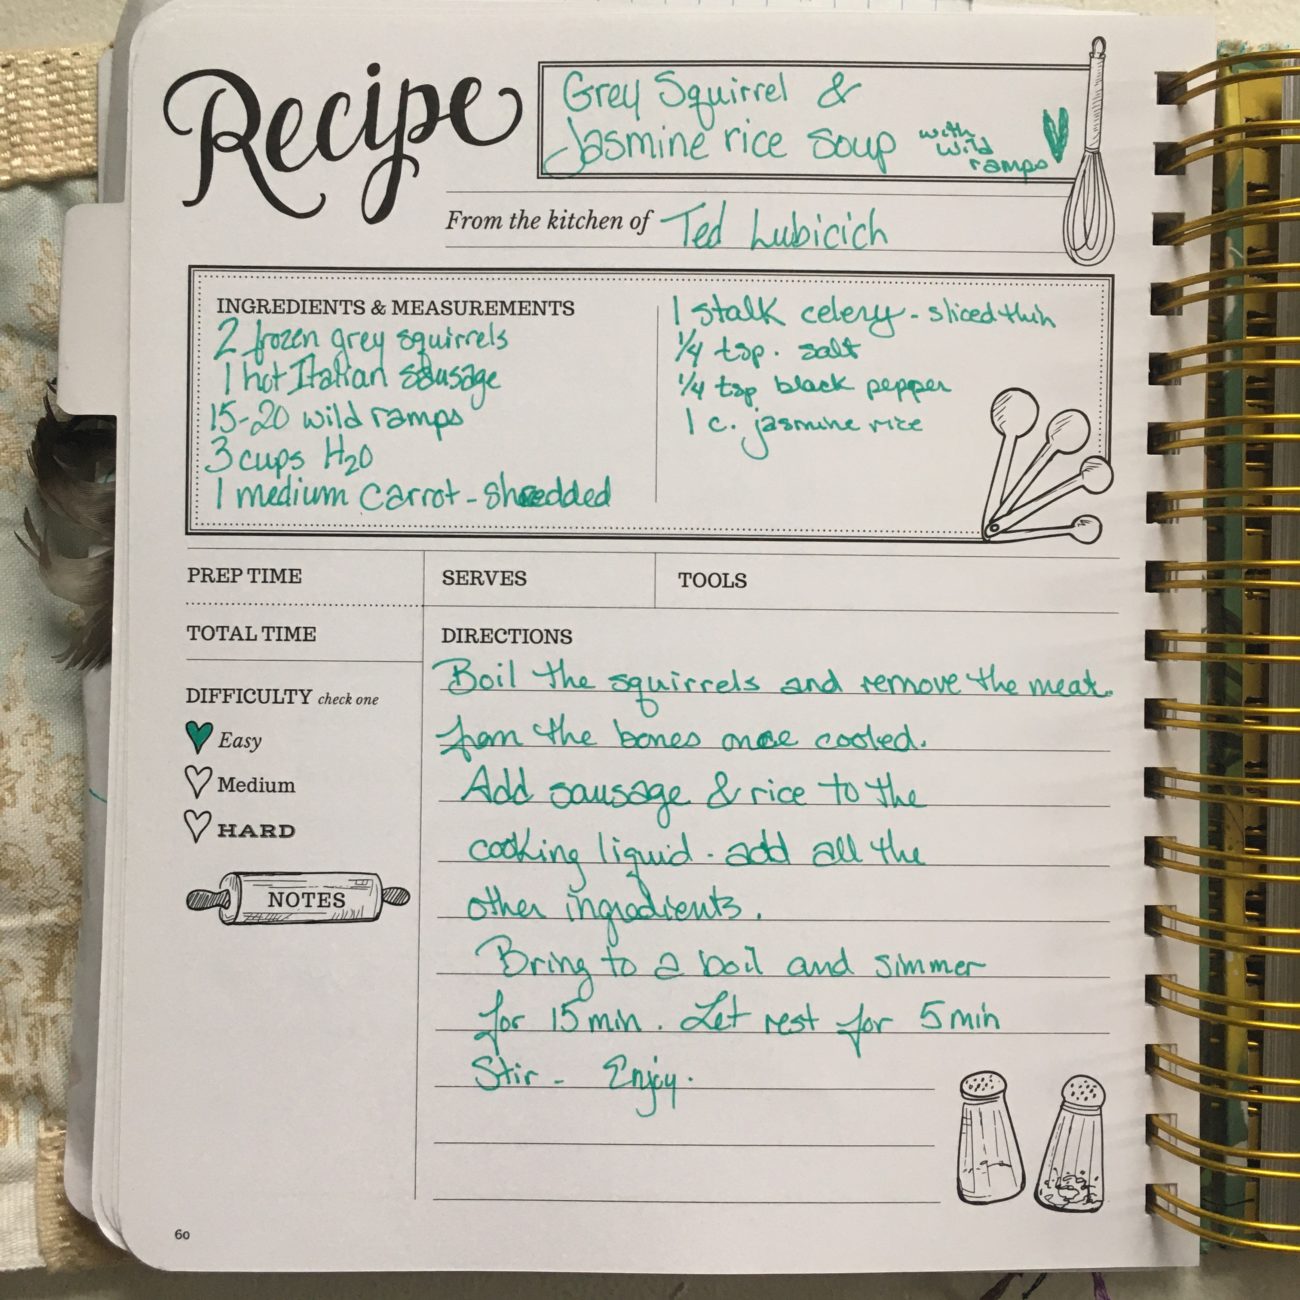 Recipe
Grey Squirrel &
Jasmine rice Soup with wild ramps
From the kitchen of Ted Lubicich
INGREDIENTS & MEASUREMENTS
2 frozen grey squirrels
1 hot Italian sausage
15-20 wild ramps
3 cups H2O
1 medium Carrot - shredded
1 stalk celery - sliced thin
1/4 tsp. salt
1/4 tsp black pepper
1 c. jasmine rice
PREP TIME
SERVES
TOOLS
TOTAL TIME
DIFFICULTY check one
Easy
Medium
HARD
NOTES
DIRECTIONS
Boil the squirrels and remove the meat
from the bones once cooled.
Add sausage & rice to the
cooking liquid. add all the
other ingredients.
Bring to a boil and simmer
for 15 min. Let rest for 5 min
Stir - Enjoy.
60